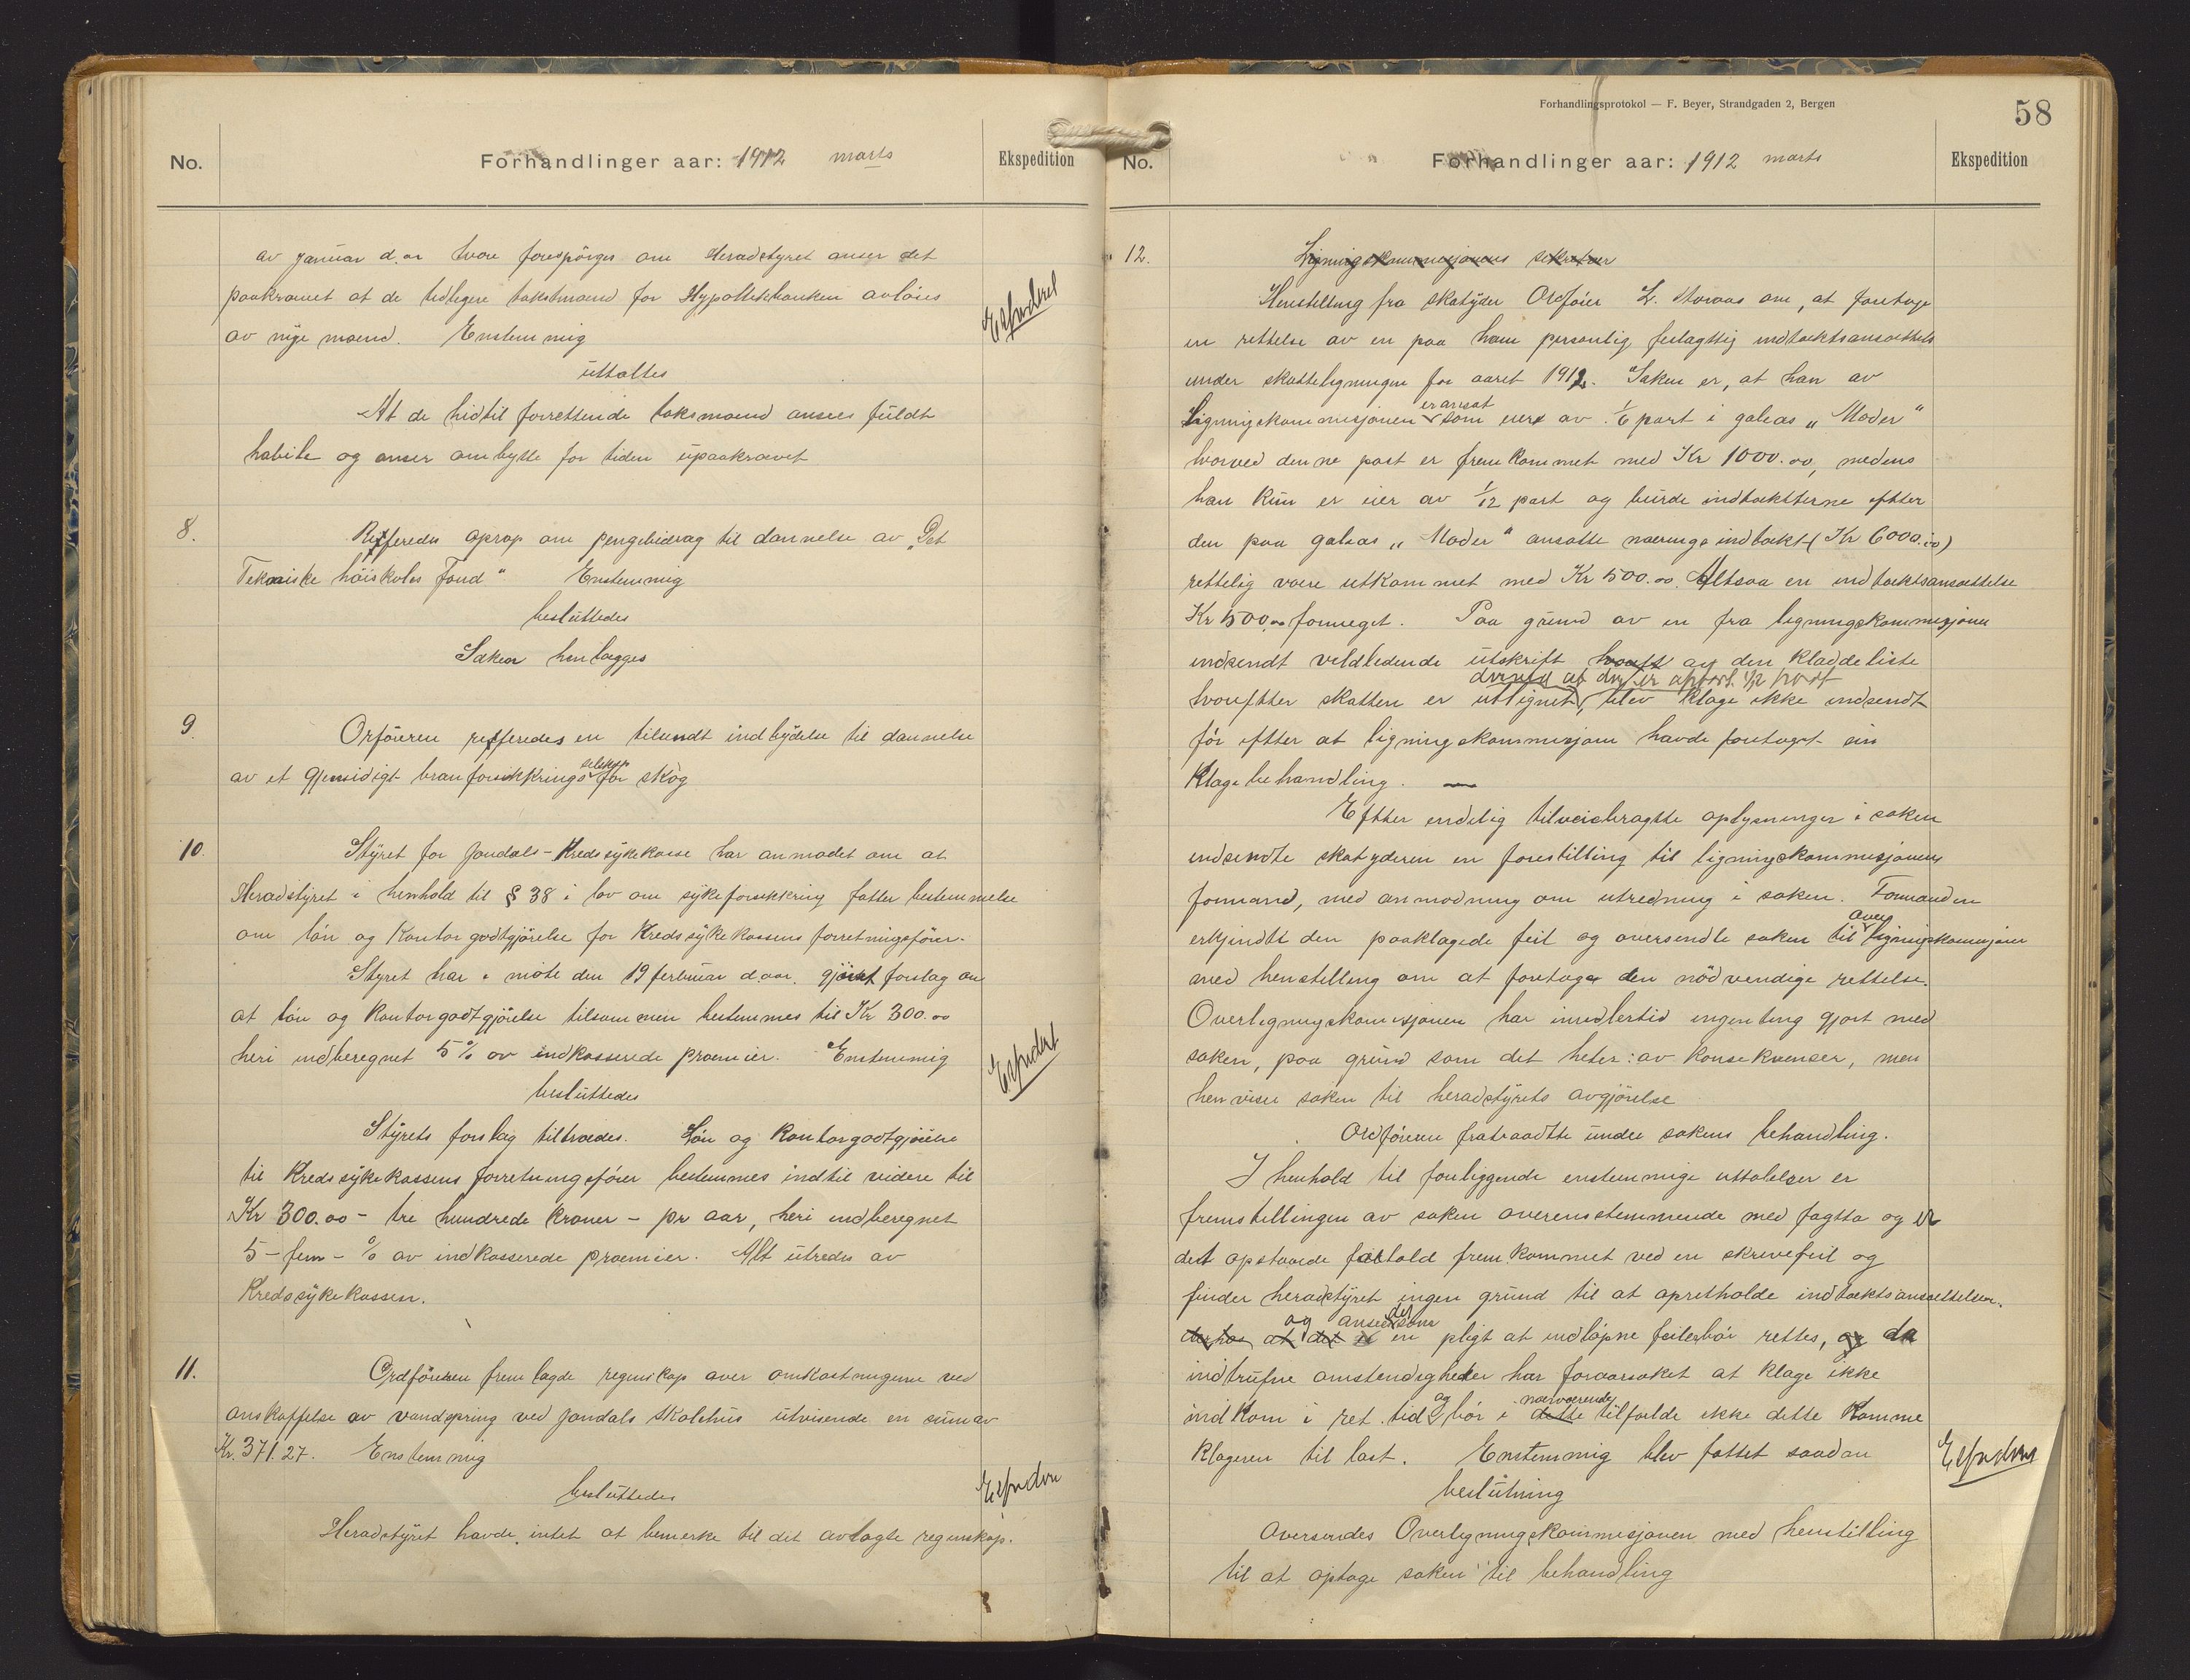 No.
Forhandlinger aar: 1912 marts
Ekspedition
av januar d. ar hvor forespörges om Heradstyret anser det
paakrævet at de tidligere takstmænd for Hypothekbanken avlöses
av nye mænd. Enstemmig
uttaltes
At de hidtil forrettende taksmænd ansees fuldt
habile og anser ombytte for tiden upaakrævet
Expederet
8.
Refferedes oprop om pengebidrag til dannelse av „Det
Tekniske höiskoles Fond" Enstemmig
besluttedes
Saken henlægges
9.
Orföreren refferedes en tilsendt indbydelse til dannelse
av et gjensidigt branforsikkrings selskap for skog
10.
Styret for Jondals-Kredssykekasse har anmodet om at
Heradstyret i henhold til § 38 i lov om sykeforsikkring fatter bestemmelse
om lön og Kontorgodtgjörelse for Kredssykekassens forretningsförer.
Styret har i möte den 19 februar d. aar. gjort forslag om
at lön og Kontorgodtgjörelse tilsammen bestemmes til Kr 300.00
heri indberegnet 5 % av indkasserede præmier. Enstemmig
besluttedes
Expedert
Styrets forslag tiltrædes. Lön og Kontorgodtgjörelse
til Kredssykekassens forretningsförer bestemmes indtil videre til
Kr 300.00 - tre hundrede kroner - pr aar, heri indberegnet
5 - fem - % av indkasserede præmier. Alt utredes av
Kredssykekassen.
11.
Ordföreren fremlagde regnskap over omkostningerne ved
anskaffelse av vandspring ved Jondals skolehus utvisende en sum av
Kr. 371.27. Enstemmig
besluttedes
Heradstyret havde intet at bemerke til det avlagte regnskap.
Forhandlingsprotokol — F. Beyer, Strandgaden 2, Bergen
58
No.
Forhandlinger aar: 1912 marts
Ekspedition
12.
Ligningskommisjonens sekretær
Henstilling fra skatyder Ordförer L. Storaas om, at foretage
en rettelse av en paa ham personlig feilagtig indtæktsansættels
under skatteligningen for aaret 1912. Saken er, at han av
Ligningskommisjonen er ansat som eier av 1/6 part i galeas „Moder"
hvorved denne post er fremkommet med Kr 1000.00, medens
han kun er eier av 1/12 part og burde indtækterne efter
den paa galeas „Moder" ansatte næringsindtækt (Kr 6000.00)
rettelig være utkommet med Kr 500.00. Altsaa en indtæktsansættelse
Kr 500.00 formeget. Paa grund av en fra ligningskommisjonen
indsendt veildledende utskrift av den kladdeliste
hvorefter skatten er utlignet, blev klage ikke indsendt
för efter at ligningskommisjonen havde foretaget sin
klagebehandling.
Efter endelig tilveiebragte oplysninger i saken
indsendte skatyderen en forestilling til ligningskommisjonens
formand, med anmodning om utredning i saken. Formanden
erkjendte den paaklagede feil og oversendte saken til overligningskommisjonen
med henstilling om at foretage den nödvendige rettelse.
Overligningskomisjonen har imidlertid ingenting gjort med
saken, paa grund som det heter: av konsekvenser, men
henviser saken til heradstyrets avgjörelse
Ordföreren fratraadte under sakens behandling.
I henhold til foreliggende enstemmige uttalelser er
fremstillingen av saken overensstemmende med fagtta og er
det opstaaede forhold fremkommet ved en skrivefeil og
finder heradstyret ingen grund til at opretholde indtæktsansættelsen.
og anser det som en pligt at indlöpne feil bör rettes, da
indtrufne omstendigheder har foraarsaket at klage ikke
indkom i ret tid og bör i nærværende tilfælde ikke dette komme
klageren til last. Enstemmig blev fattet saadan
beslutning
Oversendes Overligningskommisjonen med henstilling
til at optage saken til behandling